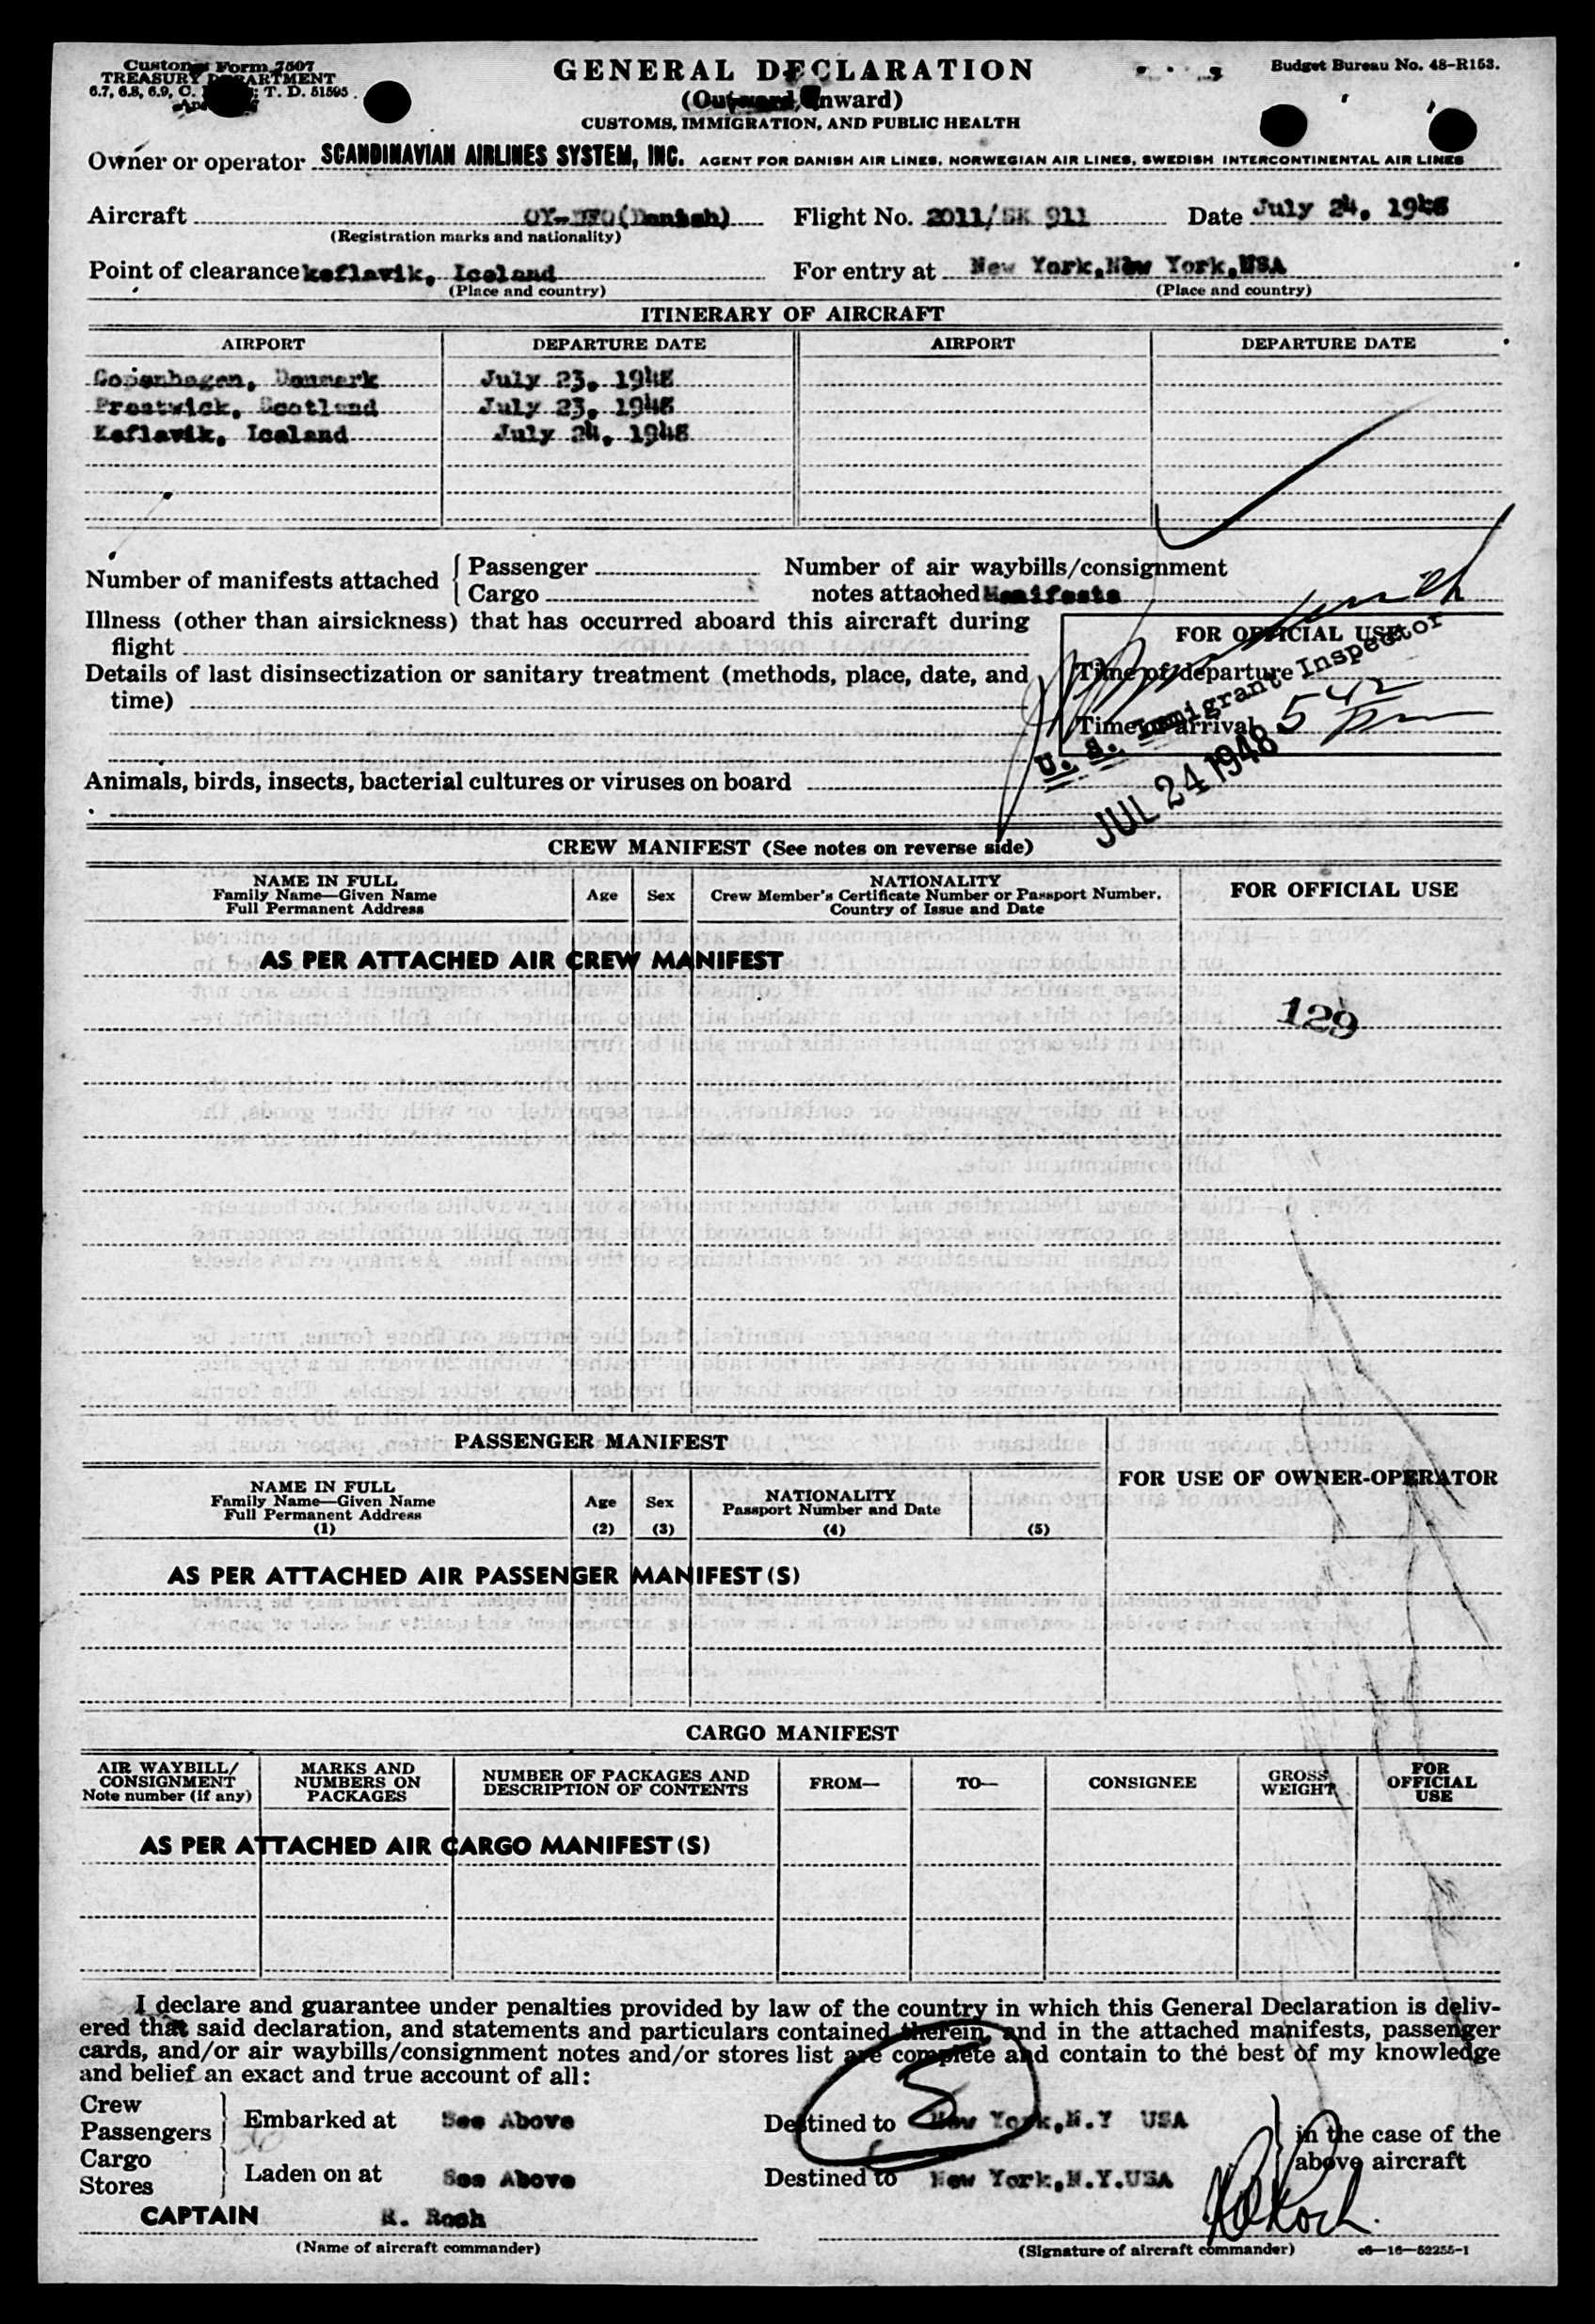 Customs Form 7507
TREASURY DEPARTMENT
6.7, 6.8, 6.9, C. T. D. 51595
GENERAL DECLARATION
(Outward, Inward)
CUSTOMS, IMMIGRATION, AND PUBLIC HEALTH
Budget Bureau No. 48-R153.
Owner or operator SCANDINAVIAN AIRLINES SYSTEM, INC. AGENT FOR DANISH AIR LINES, NORWEGIAN AIR LINES, SWEDISH INTERCONTINENTAL AIR LINES
Aircraft (Danish) Flight No. 2011/SK 911 Date July 24, 1948
(Registration marks and nationality)
Point of clearance keflavik, Iceland For entry at New York, New York, USA
(Place and country) (Place and country)
ITINERARY OF AIRCRAFT
AIRPORT DEPARTURE DATE AIRPORT DEPARTURE DATE
Copenhagen, Denmark July 23, 1948
Prestwick, Scotland July 23, 1948
Keflavik, Iceland July 24, 1948
Number of manifests attached { Passenger Number of air waybills/consignment
Cargo notes attached Manifests
Illness (other than airsickness) that has occurred aboard this aircraft during
flight
Details of last disinsectization or sanitary treatment (methods, place, date, and
time)
FOR OFFICIAL USE
Time of departure
Time of arrival 5 42 pm
U. S. Immigrant Inspector
JUL 24 1948
Animals, birds, insects, bacterial cultures or viruses on board
CREW MANIFEST (See notes on reverse side)
NAME IN FULL
Family Name—Given Name
Full Permanent Address
Age Sex
NATIONALITY
Crew Member's Certificate Number or Passport Number,
Country of Issue and Date
FOR OFFICIAL USE
AS PER ATTACHED AIR CREW MANIFEST
129
PASSENGER MANIFEST
NAME IN FULL
Family Name—Given Name
Full Permanent Address
(1)
Age
(2)
Sex
(3)
NATIONALITY
Passport Number and Date
(4)
(5)
FOR USE OF OWNER-OPERATOR
AS PER ATTACHED AIR PASSENGER MANIFEST(S)
CARGO MANIFEST
AIR WAYBILL/
CONSIGNMENT
Note number (if any)
MARKS AND
NUMBERS ON
PACKAGES
NUMBER OF PACKAGES AND
DESCRIPTION OF CONTENTS
FROM—
TO—
CONSIGNEE
GROSS
WEIGHT
FOR
OFFICIAL
USE
AS PER ATTACHED AIR CARGO MANIFEST(S)
I declare and guarantee under penalties provided by law of the country in which this General Declaration is deliv-
ered that said declaration, and statements and particulars contained therein, and in the attached manifests, passenger
cards, and/or air waybills/consignment notes and/or stores list are complete and contain to the best of my knowledge
and belief an exact and true account of all:
Crew
Passengers } Embarked at See Above Destined to New York, N.Y USA
Cargo
Stores } Laden on at See Above Destined to New York, N.Y. USA
in the case of the
above aircraft
5
CAPTAIN R. Koch
(Name of aircraft commander) (Signature of aircraft commander) c6—16—52255-1